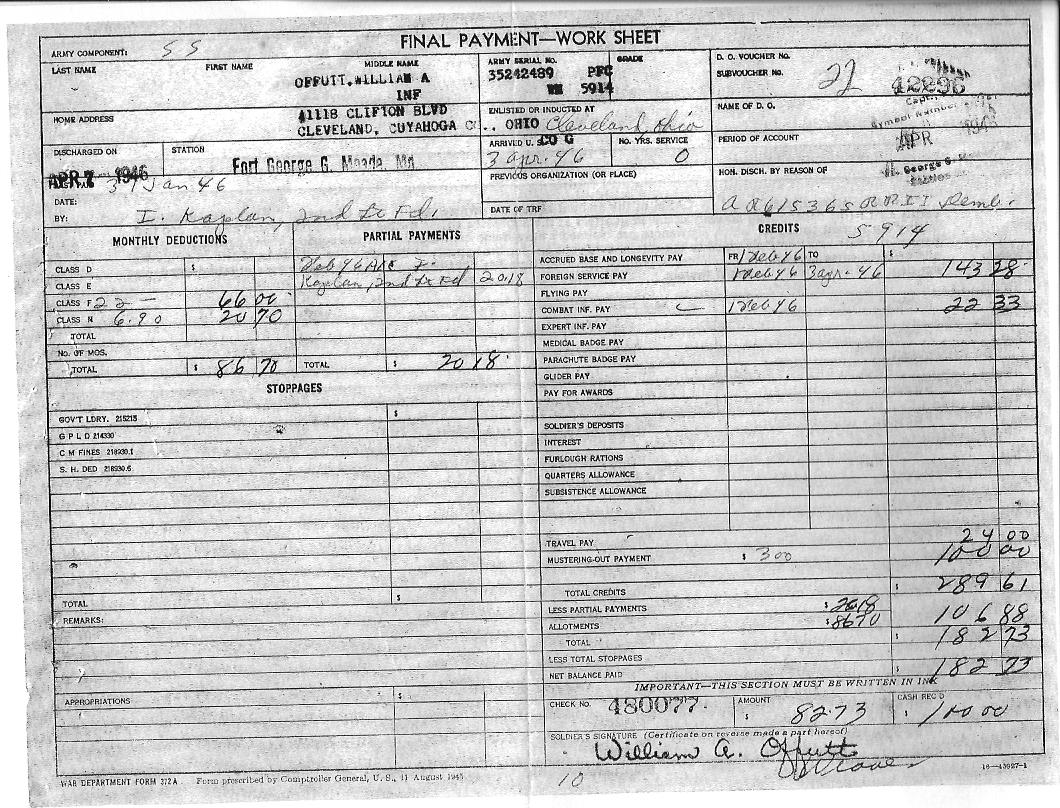 FINAL PAYMENT—WORK SHEET
ARMY COMPONENT: S S
LAST NAME FIRST NAME MIDDLE NAME
OFFUTT, WILLIAM A
INF
ARMY SERIAL NO. GRADE
35242489 PFC
5914
D. O. VOUCHER NO.
SUBVOUCHER NO. 22 42896
HOME ADDRESS
41118 CLIFTON BLVD
CLEVELAND, CUYAHOGA CO., OHIO
ENLISTED OR INDUCTED AT
Cleveland, Ohio
NAME OF D. O.
Symbol Number
DISCHARGED ON
APR 7 1946
STATION
Fort George G. Meade, Md
ARRIVED U. S. CO G
3 Apr. 46
NO. YRS. SERVICE
0
PERIOD OF ACCOUNT
APR 1946
PREVIOUS ORGANIZATION (OR PLACE)
HON. DISCH. BY REASON OF
George G.
31 Jan 46
DATE:
BY: I. Kaplan, 2nd Lt Fd.
DATE OF TRF
AR 615 365 RR II Demb.
5914
MONTHLY DEDUCTIONS
PARTIAL PAYMENTS
CREDITS
CLASS D $
CLASS E
CLASS F 22 — 66 00
CLASS N 6.90 20 70
TOTAL
NO. OF MOS.
TOTAL $ 86 70
Feb 46
Kaplan, 2nd Lt Fd 20.18
TOTAL $ 20 18
ACCRUED BASE AND LONGEVITY PAY FR 1 Feb 46 TO $
FOREIGN SERVICE PAY 1 Feb 46 3 Apr. 46 143 28
FLYING PAY
COMBAT INF. PAY 1 Feb 46 22 33
EXPERT INF. PAY
MEDICAL BADGE PAY
PARACHUTE BADGE PAY
GLIDER PAY
PAY FOR AWARDS
SOLDIER'S DEPOSITS
INTEREST
FURLOUGH RATIONS
QUARTERS ALLOWANCE
SUBSISTENCE ALLOWANCE
STOPPAGES
GOV'T LDRY. 215215 $
G P L D 214330
C M FINES 218930.1
S. H. DED 218930.6
TOTAL $
REMARKS:
APPROPRIATIONS $
TRAVEL PAY 24 00
MUSTERING-OUT PAYMENT $ 300 100 00
TOTAL CREDITS $ 289 61
LESS PARTIAL PAYMENTS $ 2018
ALLOTMENTS $ 8670 106 88
TOTAL $ 182 73
LESS TOTAL STOPPAGES
NET BALANCE PAID $ 182 73
IMPORTANT—THIS SECTION MUST BE WRITTEN IN INK
CHECK NO. 480077
AMOUNT
$ 82.73
CASH REC'D
$ 100 00
SOLDIER'S SIGNATURE (Certificate on reverse made a part hereof)
William A. Offutt
WAR DEPARTMENT FORM 372A Form prescribed by Comptroller General, U. S., 11 August 1945
10
16—43927-1